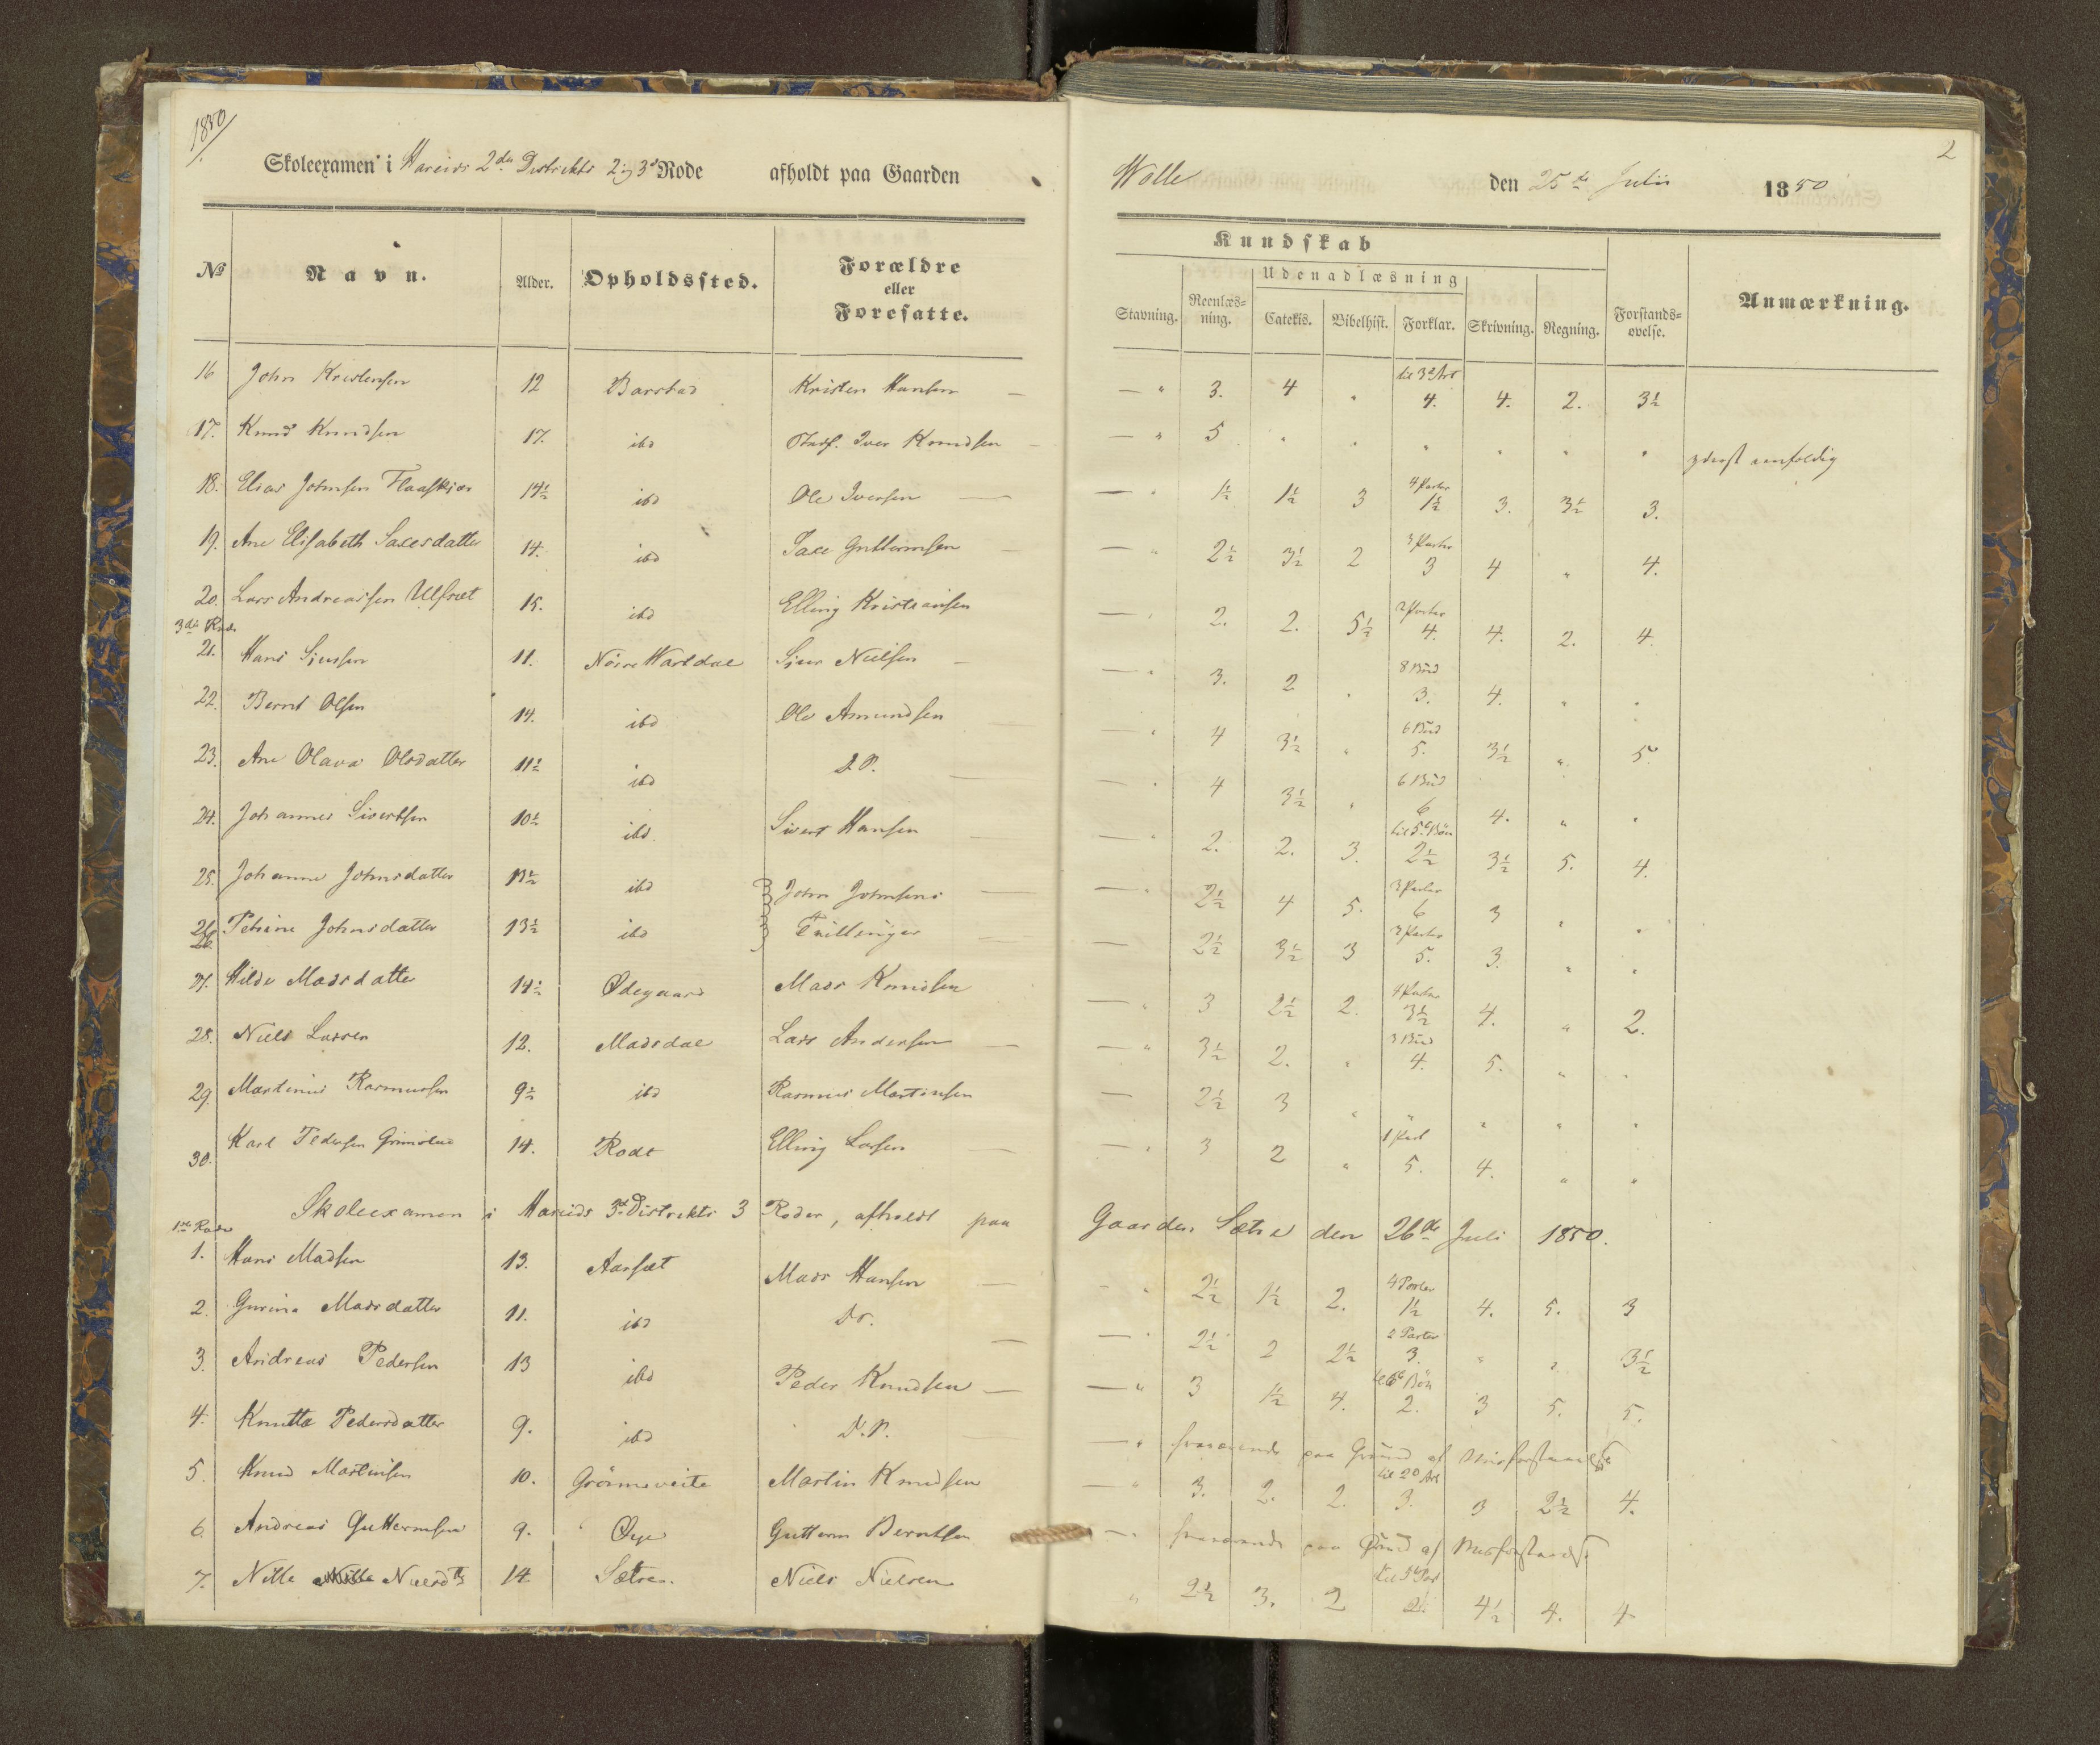 1850
Skoleexamen i Hareids 2den Distrikts 2 og 3d Rode afholdt paa Gaarden Wolle den 25de Julii 1850
2
Kundskab
Udenadlæsning
№ Navn. Alder. Opholdssted. Forældre eller Foresatte. Stavning. Reenlæsning. Catekis. Bibelhist. Forklar. Skrivning. Regning. Forstandsøvelse. Anmærkning.
16 John Kristensen 12 Barstad Kristen Hansen — " 3. 4 " til 3d Art 4. 4. 2. 3½
17. Knud Knudsen 17. ibd Iver Knudsen — " 5 " " " " " " enfoldig
18. Elias Johnsen Flaaskjær 14½ ibd Ole Iversen — " 1½ 1½ 3 4 Parter 1½ 3. 3½ 3.
19. Ane Elisabeth Saxesdatter 14. ibd Saxe Guttormsen — " 2½ 3½ 2 3 Parter 3 4 " 4.
20. Lars Andreassen Ulset 15. ibd Elling Kristiansen — " 2. 2. 5½ 2 Parter 4. 4. 2. 4.
3die Rode
21. Hans Siursen 11. Nöire Wartdal Siur Nielsen — " 3. 2 " 8 Bud 3. 4. " "
22. Bernt Olsen 14. ibd Ole Amundsen — " 4 3½ " 6 Bud 5. 3½ " 5.
23. Ane Olava Olsdatter 11½ ibd D.P. — " 4 3½ " 6 Bud 6 4. " "
24. Johannes Sivertsen 10½ ibd Sivert Hansen — " 2. 2. 3. til 5te Bön 2½ 3½ 5. 4.
25. Johanne Johnsdatter 13½ ibd John Johnsens — " 2½ 4 5. 3 Parter 6 3 " "
26. Petrine Johnsdatter 13½ ibd Tvillinger — 2½ 3½ 3 3 Parter 5. 3. " "
27. Hilde Madsdatter 14½ Ødegaard Mads Knudsen — " 3 2½ 2. 4 Parter 3½ 4. " 2.
28. Niels Larsen 12. Madsdal Lars Andersen — " 3½ 2. " 3 Bud 4. 5. " "
29. Martinus Rasmussen 9½ ibd Rasmus Martinsen — 2½ 3 " " " " "
30. Karl Pedersen 14. Rodt Elling Larsen — " 3 2 " 1 Part 5. 4. " "
Skoleexamen i Hareids 3d Distrikts 3 Roder, afholdt paa Gaarden Sætre den 26de Juli 1850.
1ste Rode
1. Hans Madsen 13. Aarset Mads Hansen — " 2½ 1½ 2. 4 Parter 1½ 4. 5. 3
2. Gurina Madsdatter 11. ibd Do. — " 2½ 2 2½ 2 Parter 3. " " 3½
3. Andreas Pedersen 13 ibd Peder Knudsen — " 3 1½ 4. til 6te Bön 2. 3 5. 5.
4. Knutte Pedersdatter 9. ibd D.P. — " fraværende paa Grund af Misforstaaelse
5. Knud Martinsen 10. Grönneveite Martin Knudsen — " 3. 2. 2. til 2d Art 3. 3 2½ 4.
6. Andreas Guttormsen 9. Øye Guttorm Berntsen — " fraværende paa Grund af Misforstaaelse
7. Nille Nielsdtr 14 Sætre. Niels Nielsen " 2½ 3. 2 til 3d Part 2. 4½ 4. 4